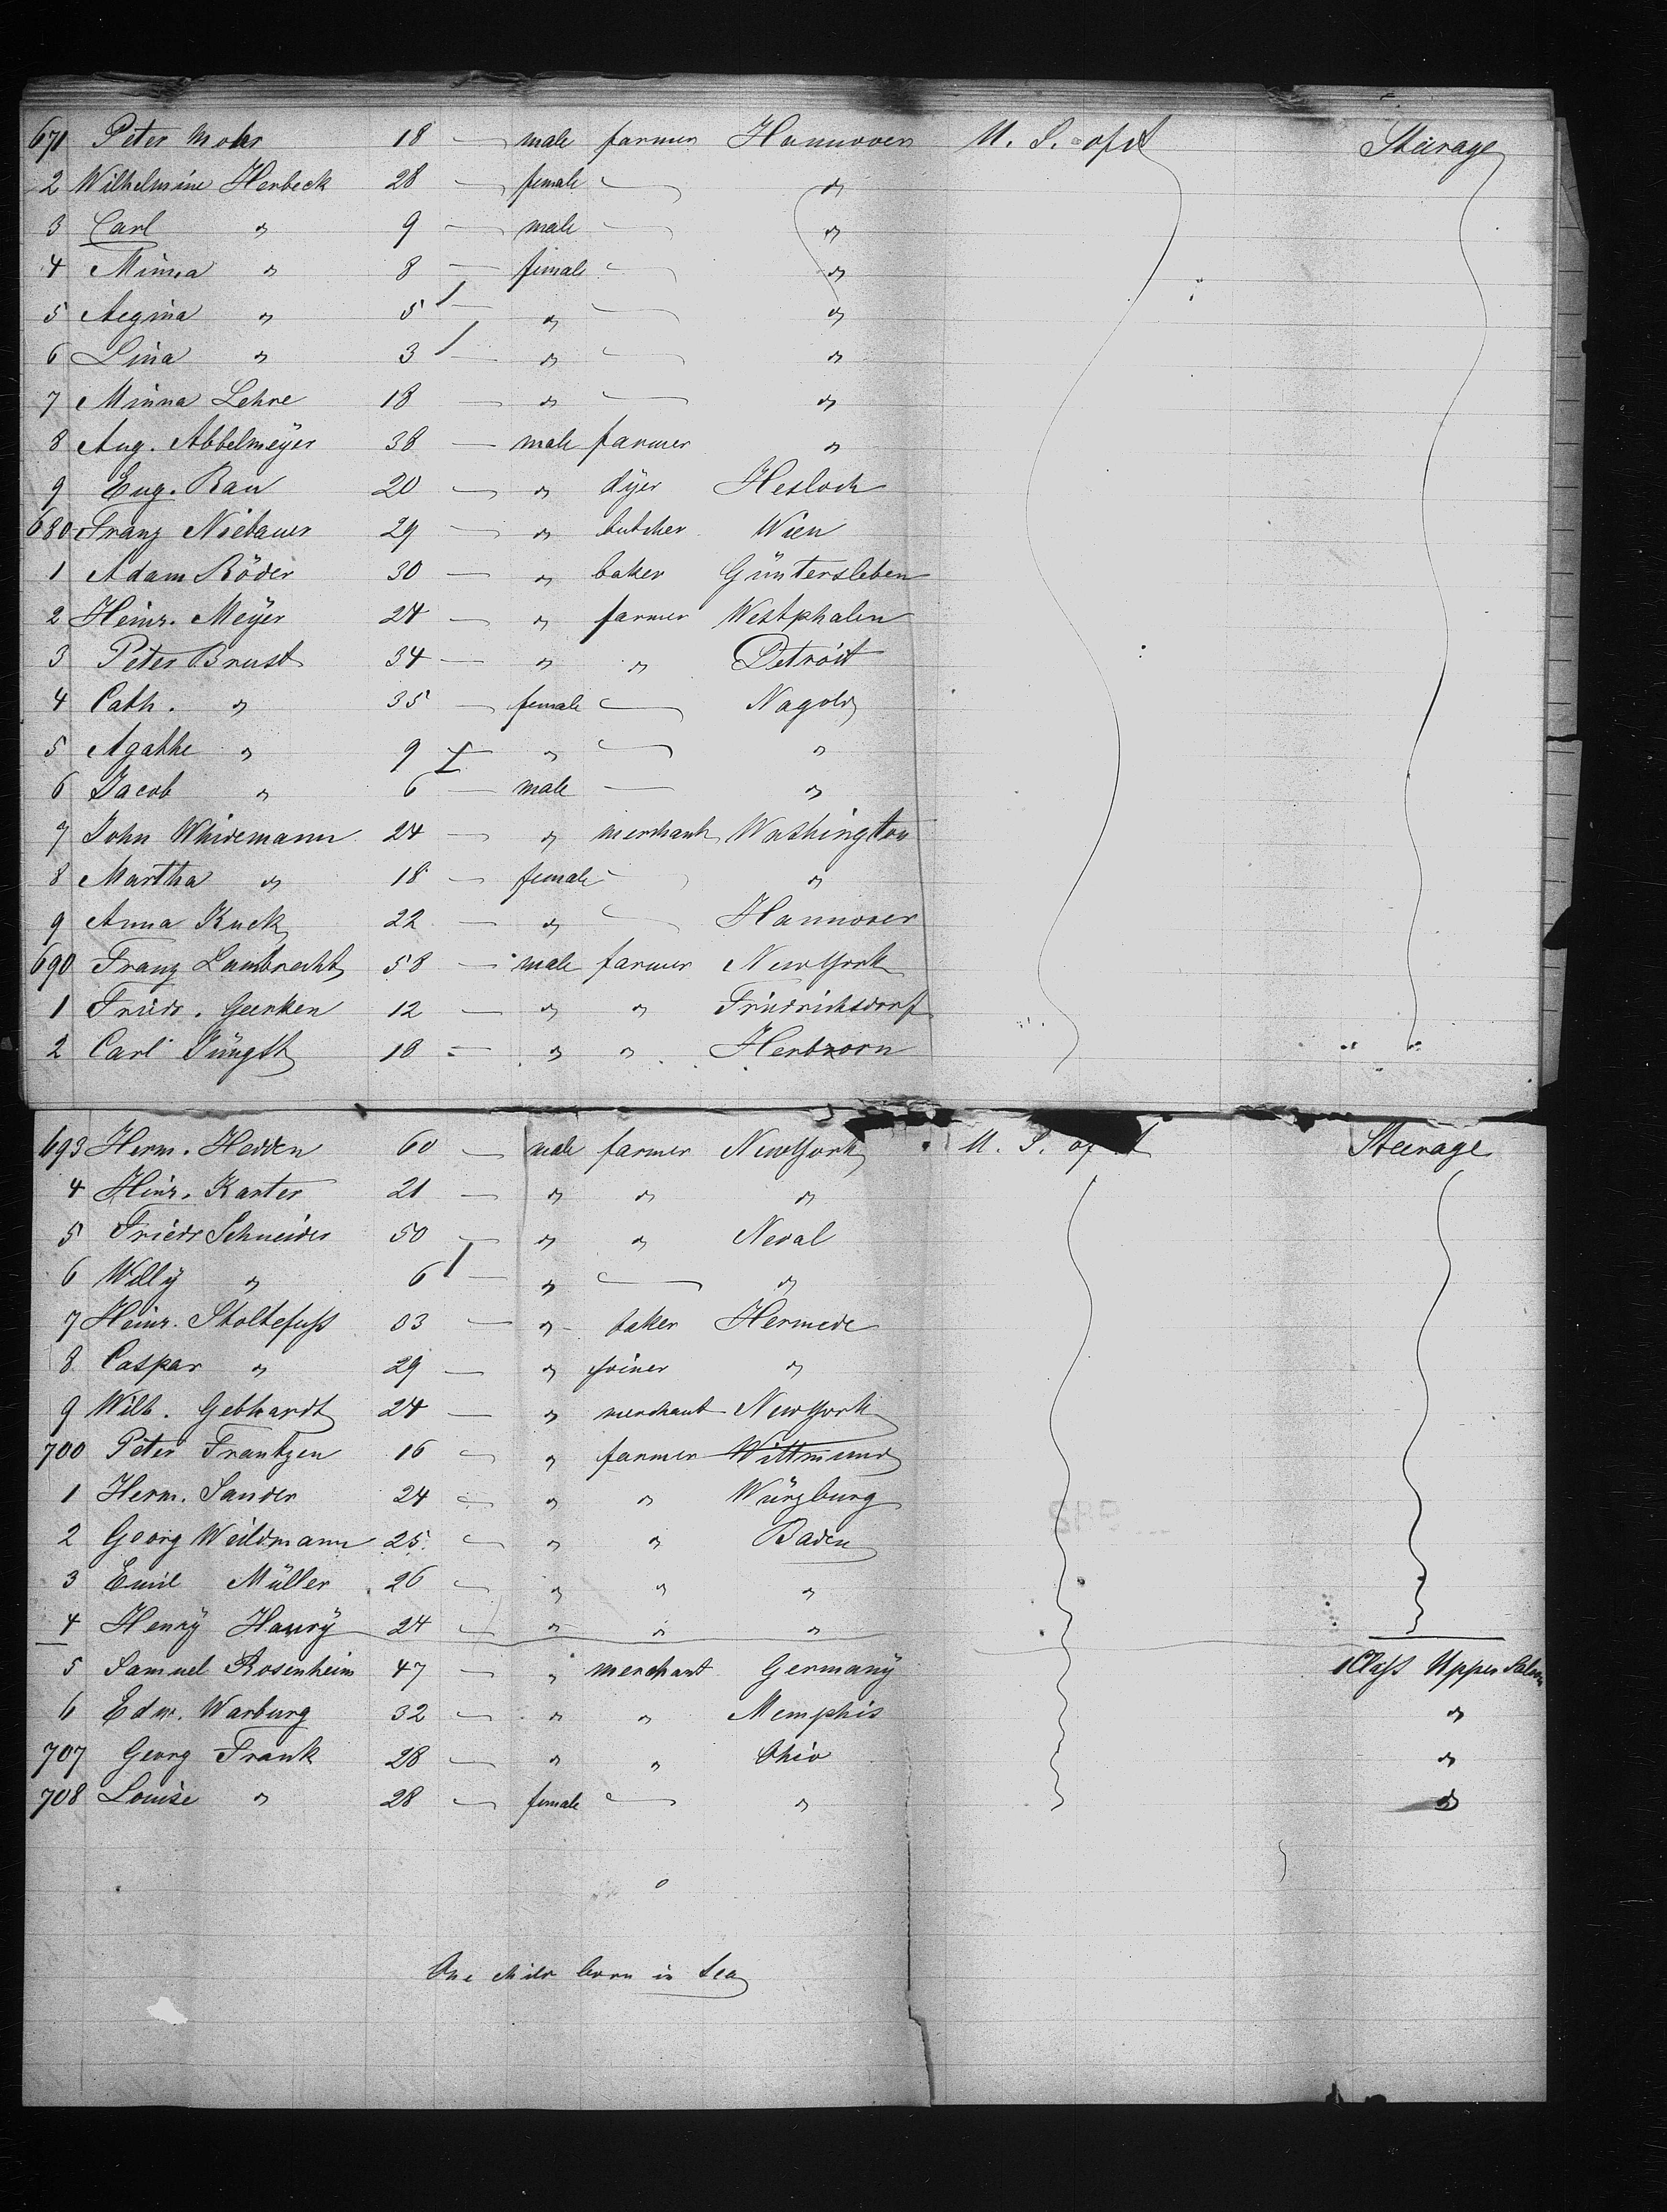 671 Peter Mohr 18 — male farmer Hannover U. S. of A Steerage
2 Wilhelmine Herbeck 28 — female — "
3 Carl " 9 — male — "
4 Minna " 8 — female — "
5 Aegina " 5 — " — "
6 Lina " 3 — " — "
7 Minna Lehre 18 — " — "
8 Aug. Abbelmeÿer 38 — male farmer "
9 Eug. Rau 20 — " dÿer Hesloch
680 Franz Niebauer 29 — " butcher Wien
1 Adam Röder 30 — " baker Güntersleben
2 Heinr. Meÿer 24 — " farmer Westphalen
3 Peter Brust 34 — " " Detroit
4 Cath. " 35 — female — Nagold
5 Agathe " 9 — " — "
6 Jacob " 6 — male — "
7 John Whidemann 24 — " merchant Washington
8 Martha " 18 — female — "
9 Anna Kuck 22 — " — Hannover
690 Franz Lambrecht 58 — male farmer New York
1 Friedr. Geerken 12 — " " Friedrichsdorf
2 Carl Jüngst 18 — " " Herbzorn
693 Herm. Hedden 60 — male farmer New York U. S. of Steerage
4 Hinr. Karter 21 — " " "
5 Friedr Schneider 50 — " " Neval
6 Willÿ " 6 — " — "
7 Heinr. Stoltefuss 33 — " baker Hermede
8 Caspar " 29 — " joiner "
9 Wilh. Gebhardt 24 — " merchant New York
700 Peter Frantzen 16 — " farmer Wittmund
1 Herm. Sander 24 — " " Würzburg
2 Georg Weildmann 25 — " " Baden
3 Emil Müller 26 — " " "
4 Henrÿ Haurÿ 24 — " " "
5 Samuel Rosenheim 47 — " merchant Germanÿ 1 Class Upper Saloon
6 Edw. Warburg 32 — " " Memphis "
707 Georg Frank 28 — " " Ohio "
708 Louise " 28 — female — " "
One child born in Sea